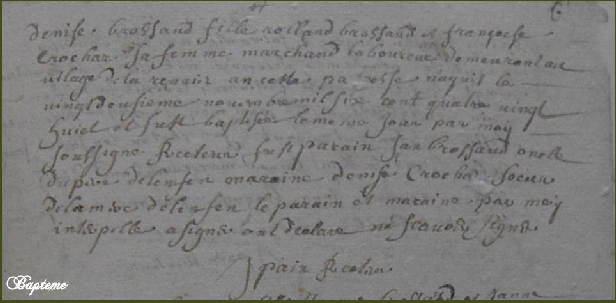 denise brossaud fille rolland brossaud et françoise
Crochar sa femme marchand laboureur demeurant au
vilage de la en cette paroesse naquit le
vingt deusieme novembre mil six cent quatre vingt
huict et futt baptisee le meme jour par moy
soussigné Recteur fust parain Jan brossaud oncle
du pere de lenfen maraine denise Crochar soeur
de la mere de lenfen le parain et maraine par moy
intepelle a signe ont declare ne scavoir signe
Recteur
Bapteme